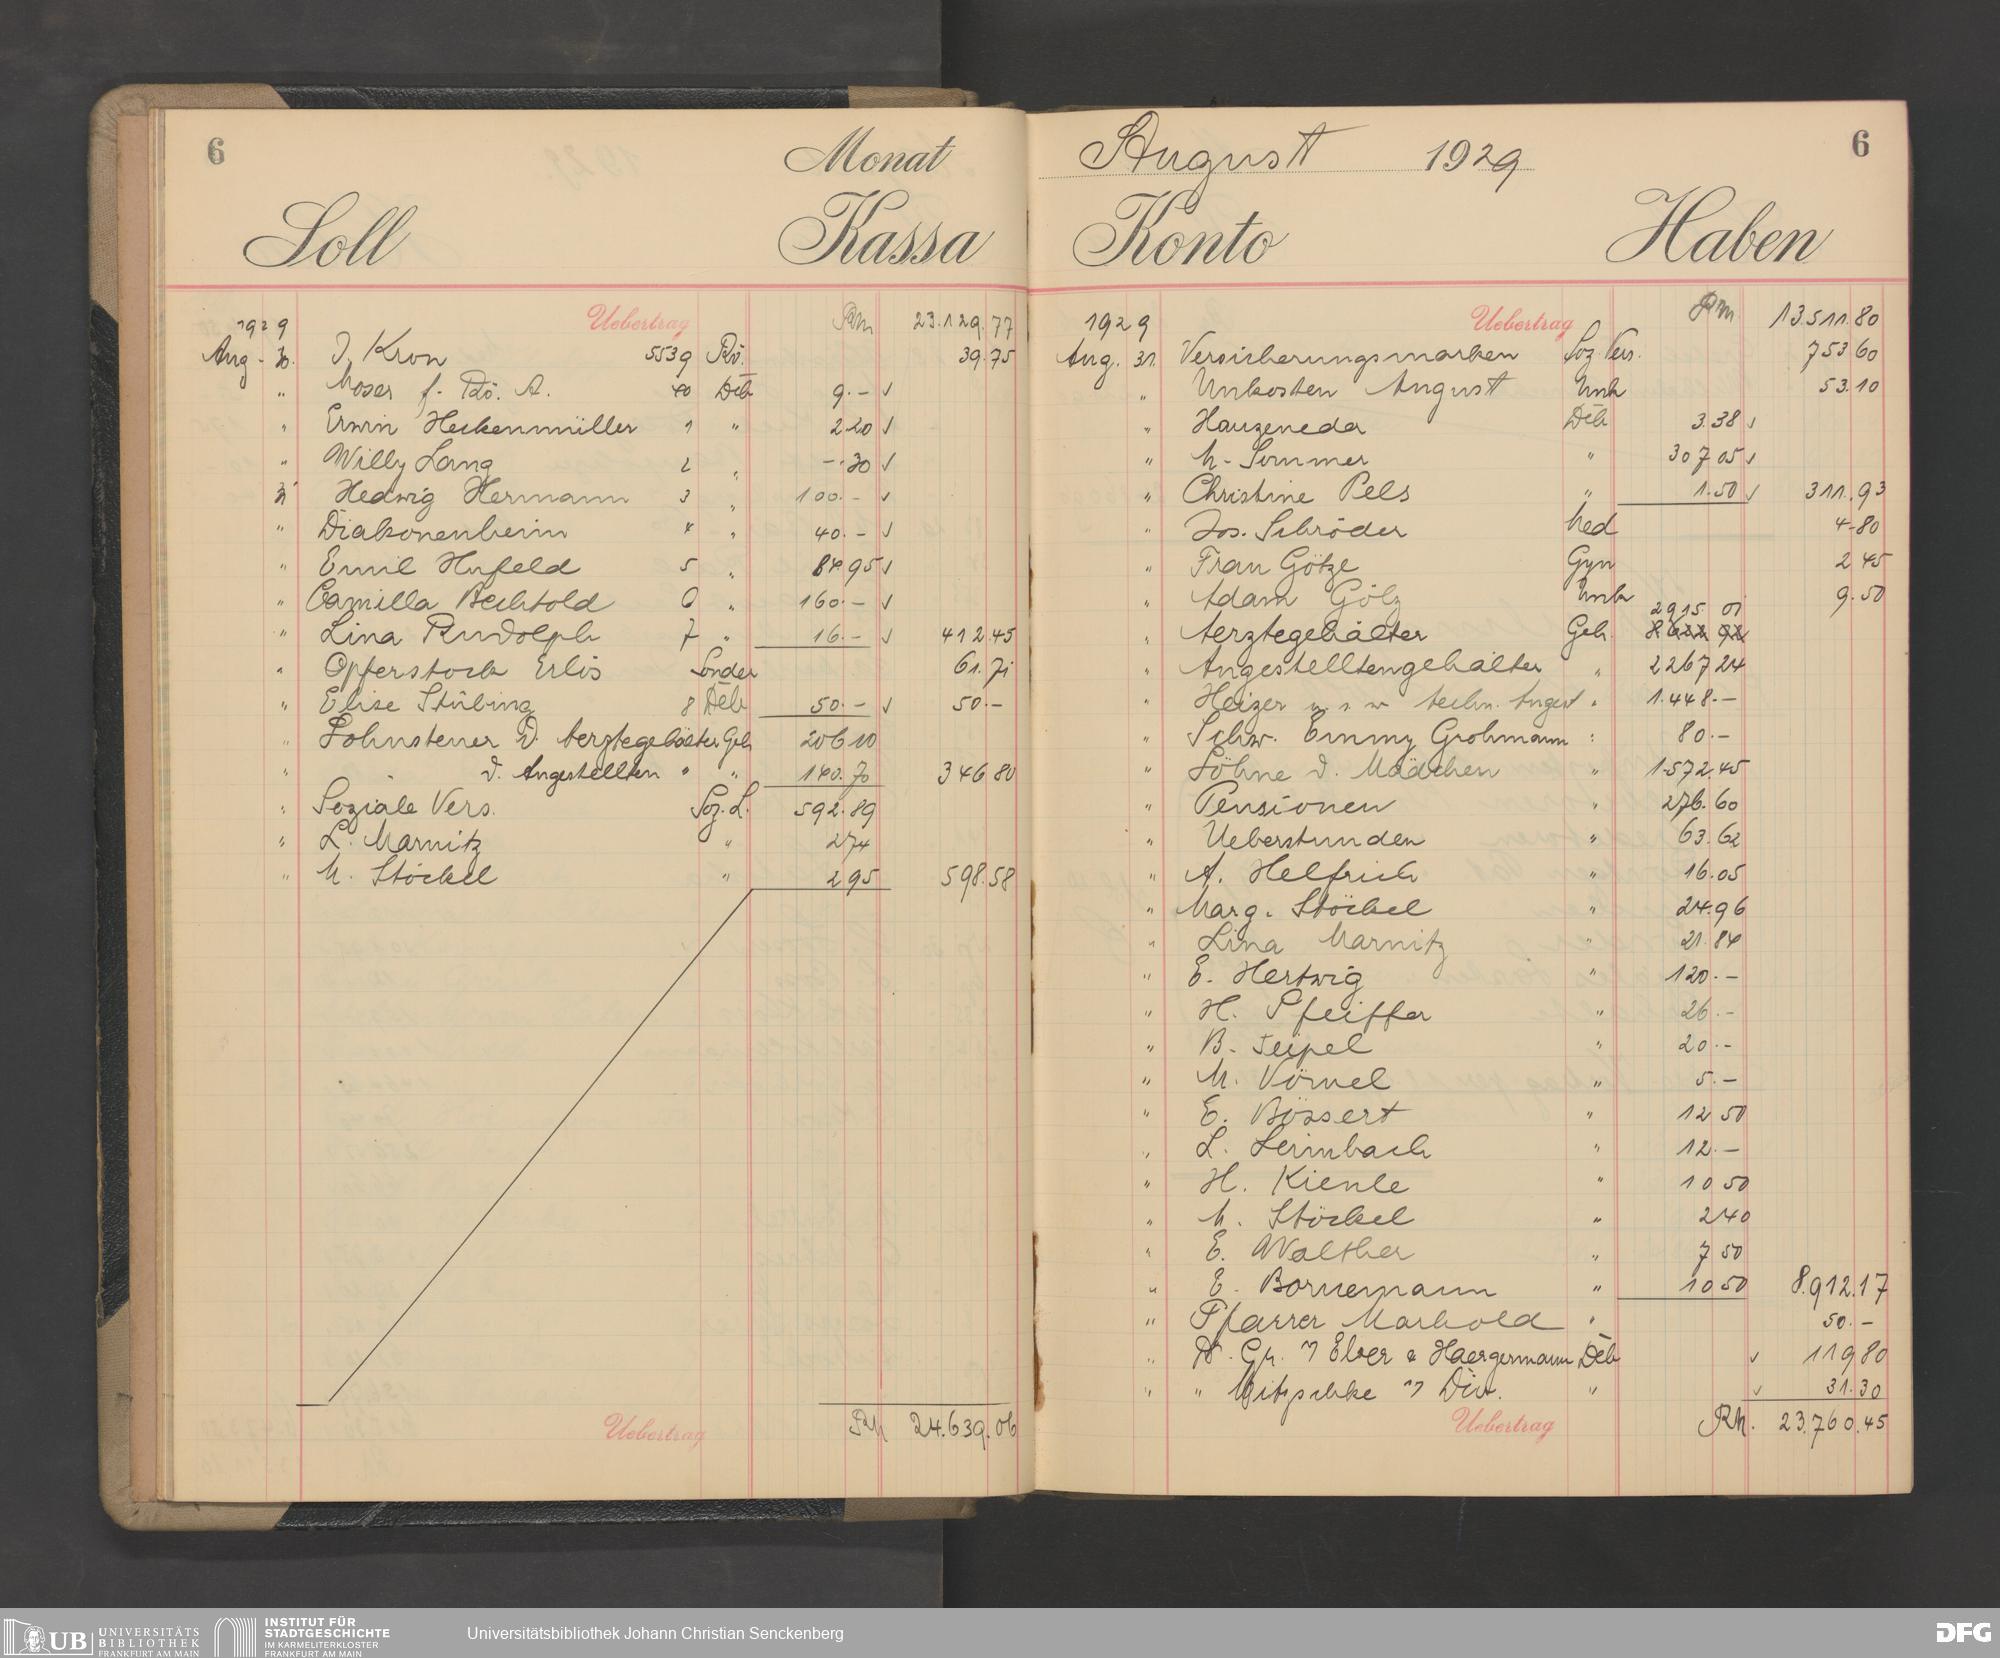 6
Monat
Soll Kassa
1929 Uebertrag Rm 23.129.77
Aug. 30. J. Kron 5539 Rö. 39.75
" Moser f. Rö. A. 40 Deb 9.- ✓
" Erwin Heckenmüller 1 " 2 20 ✓
" Willy Lang 2 " -.30 ✓
31 Hedwig Hermann 3 " 100.- ✓
" Diakonenheim 4 " 40.- ✓
" Emil Hufeld 5 " 84.95 ✓
" Camilla Bechtold 6 " 160.- ✓
" Lina Rudolph 7 " 16.- ✓ 412.45
" Opferstock Erlös Sonder 61.71
" Elise Stübing 8 Deb 50.- ✓ 50.-
" Lohnsteuer d. Aerztegehälter Geh 206 10
" d. Angestellten " " 140.70 346 80
" Soziale Vers. Soz. L. 592.89
" L. Marnitz " 2 74
" M. Stöckel " 2 95 598.58
Uebertrag RM 24.639.06
August 1929
6
Konto Haben
1929 Uebertrag Rm 13511.80
Aug. 31. Versicherungsmarken Soz. Vers. 753 60
" Unkosten August Unk 53.10
" Hauzeneda Deb 3.38 ✓
" M. Sommer " 307 05 ✓
" Christine Pels " 1.50 ✓ 311.93
" Jos. Schröder Med 4.80
" Frau Götze Gyn 2 45
" Adam Gölz Unk 9.50
" Aerztegehälter Geh. 2915 01
" Angestelltengehälter " 2267 24
" Heizer u. s. w techn. Angest " 1.448.-
" Schw. Emmy Grohmann " 80.-
" Löhne d. Mädchen " 1.572.45
" Pensionen " 276.60
" Ueberstunden " 63.62
" A. Helfrich " 16.05
" Marg. Stöckel " 24.96
" Lina Marnitz " 21.84
" E. Hertwig " 120.-
" H. Pfeiffer " 26.-
" B. Seipel " 20.-
" M. Vömel " 5.-
" E. Bössert " 12 50
" L. Leimbach " 12.-
" H. Kienle " 10 50
" M. Stöckel " 2 40
" E. Walther " 7 50
" E. Bornemann " 10 50 8.912.17
" Pfarrer Marhold " 50.-
" Deb ✓ 119 80
" " " ✓ 31.30
Uebertrag RM. 23.760.45
UB UNIVERSITÄTS
BIBLIOTHEK
FRANKFURT AM MAIN
INSTITUT FÜR
STADTGESCHICHTE
IM KARMELITERKLOSTER
FRANKFURT AM MAIN
Universitätsbibliothek Johann Christian Senckenberg
DFG